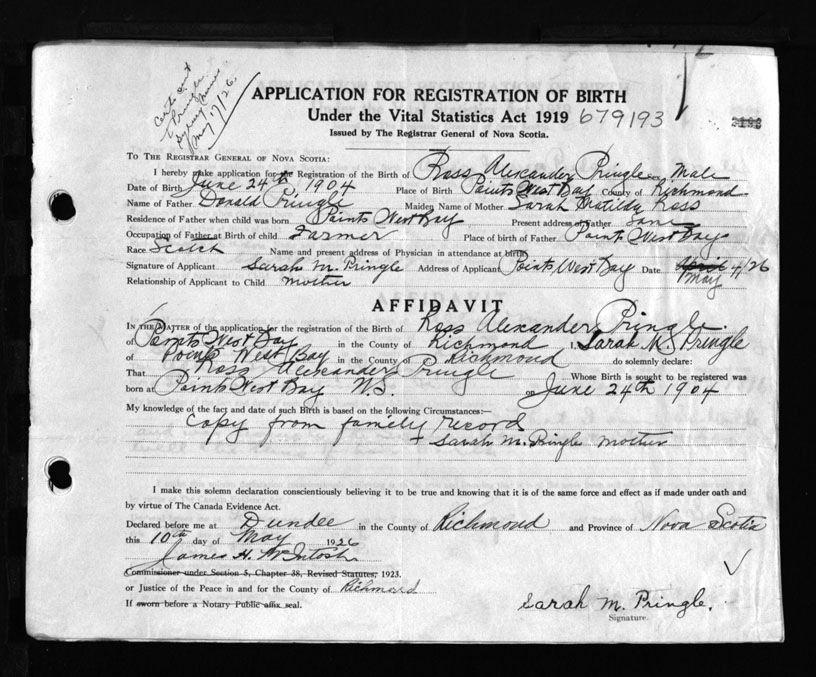 Cert sent
Pringle
May 17/26.
APPLICATION FOR REGISTRATION OF BIRTH
Under the Vital Statistics Act 1919 679193
Issued by The Registrar General of Nova Scotia.
To The Registrar General of Nova Scotia:
I hereby make application for the Registration of the Birth of Ross Alexander Pringle Male
Date of Birth June 24th, 1904 Place of Birth Points West Bay County of Richmond
Name of Father Donald Pringle Maiden Name of Mother Sarah Matilda Ross
Residence of Father when child was born Points West Bay Present address of Father Same
Occupation of Father at Birth of child Farmer Place of birth of Father Points West Bay
Race Scotch Name and present address of Physician in attendance at birth
Signature of Applicant Sarah M. Pringle Address of Applicant Points West Bay Date April 4/26
May
Relationship of Applicant to Child mother
AFFIDAVIT
In the Matter of the application for the registration of the Birth of Ross Alexander Pringle.
of Points West Bay in the County of Richmond I, Sarah M. Pringle
of Points West Bay in the County of Richmond do solemnly declare:
That Ross Alexander Pringle Whose Birth is sought to be registered was
born at Points West Bay N.S. on June 24th 1904
My knowledge of the fact and date of such Birth is based on the following Circumstances:—
Copy from family record
+ Sarah M. Pringle mother
I make this solemn declaration conscientiously believing it to be true and knowing that it is of the same force and effect as if made under oath and
by virtue of The Canada Evidence Act.
Declared before me at Dundee in the County of Richmond and Province of Nova Scotia
this 10th day of May 1926
James H. McIntosh
Commissioner under Section 5, Chapter 38, Revised Statutes, 1923.
or Justice of the Peace in and for the County of Richmond
If sworn before a Notary Public affix seal.
Sarah M. Pringle.
Signature.